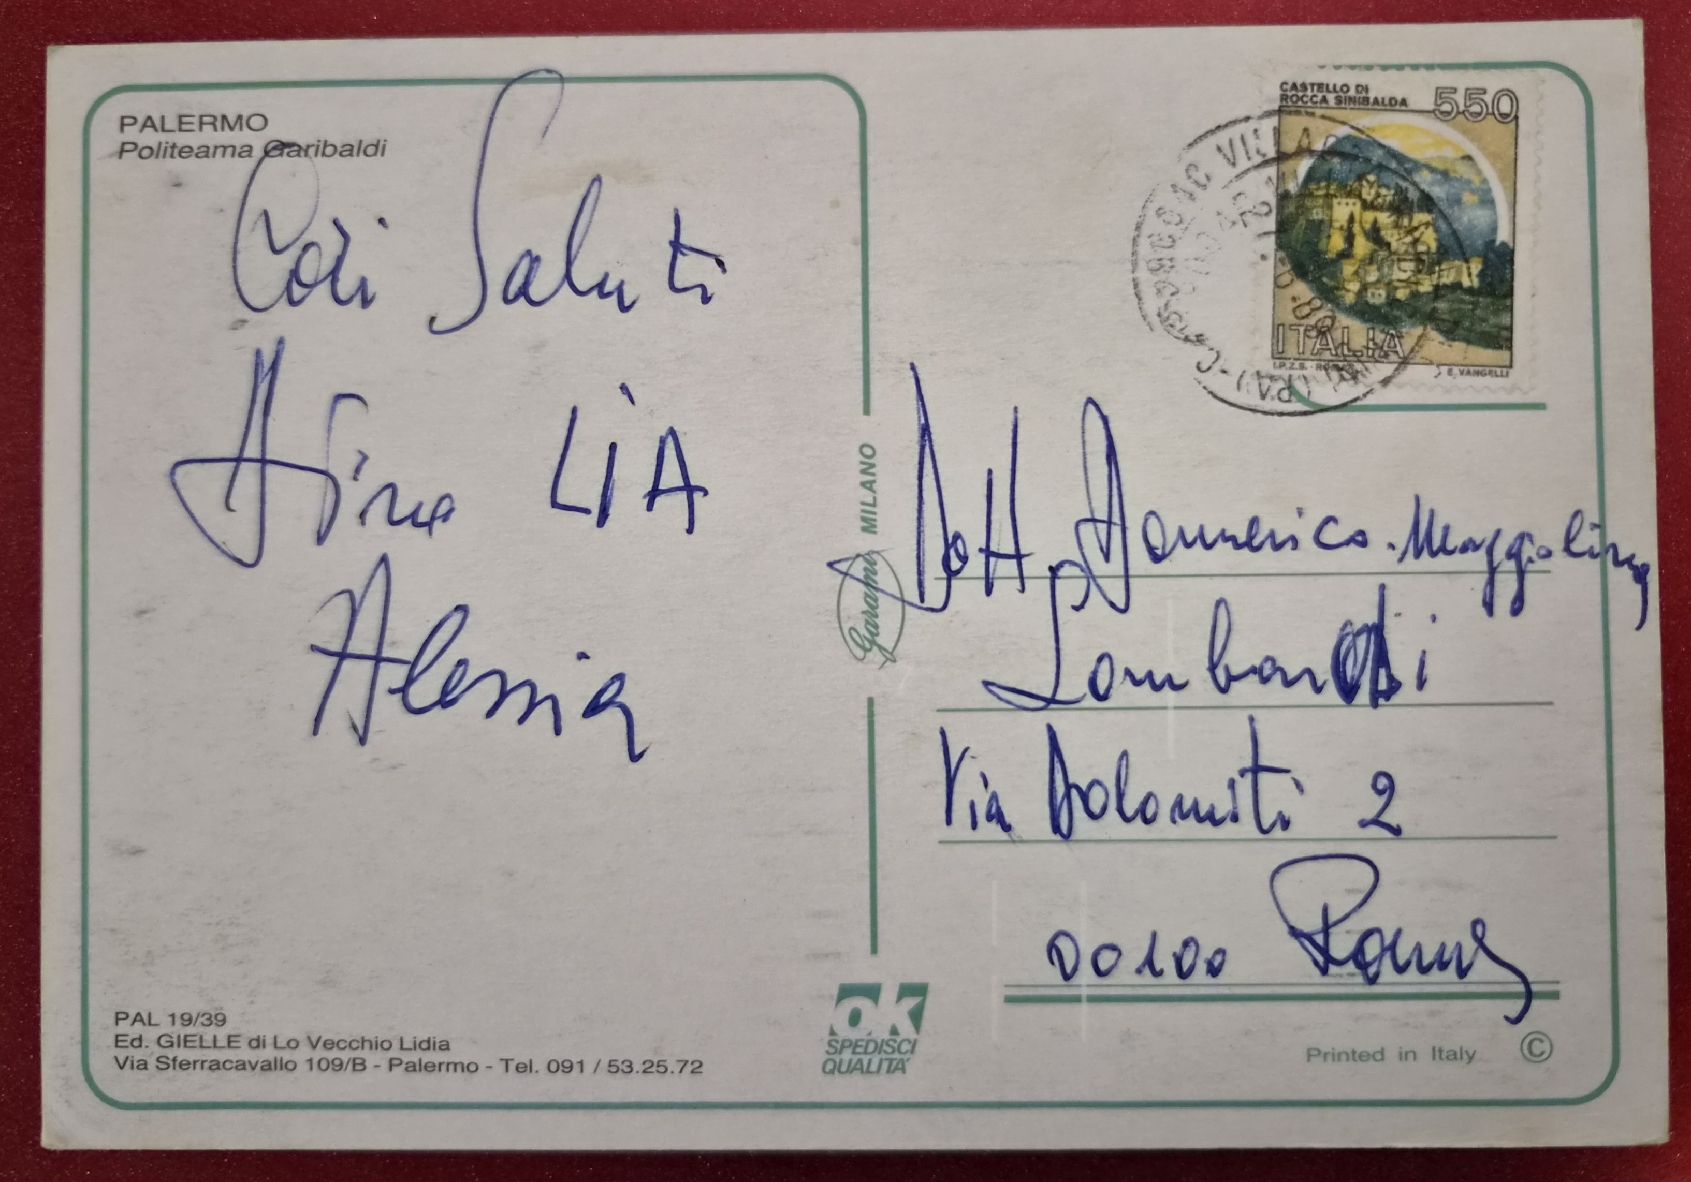 PALERMO
Politeama Garibaldi
Cari Saluti
LIA
Alessia
CASTELLO DI
ROCCA SINIBALDA
550
ITALIA
I.P.Z.S. - ROMA
E. VANGELLI
Garami MILANO
Dott. Domenico Maggiolina
Lombardi
Via Dolomiti 2
00100 Roma
PAL 19/39
Ed. GIELLE di Lo Vecchio Lidia
Via Sferracavallo 109/B - Palermo - Tel. 091 / 53.25.72
OK
SPEDISCI
QUALITA'
Printed in Italy ©